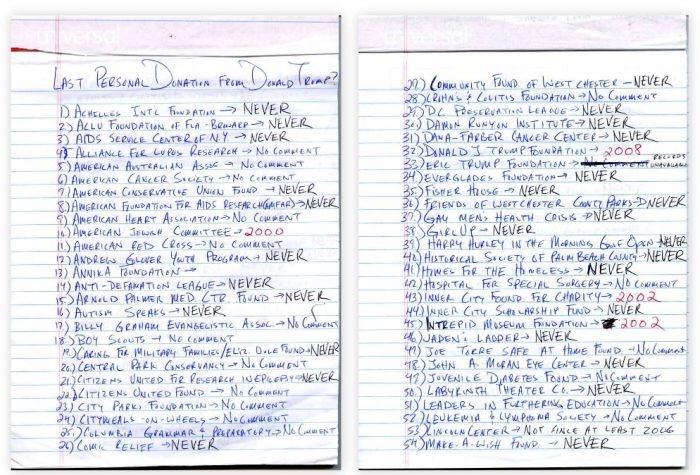 universal
LAST PERSONAL DONATION FROM DONALD TRUMP?
1) ACHILLES INTL FOUNDATION → NEVER
2) ACLU FOUNDATION OF FLA - BROWARD → NEVER
3) AIDS SERVICE CENTER OF NY → NEVER
4) ALLIANCE FOR LUPUS RESEARCH → NO COMMENT
5) AMERICAN AUSTRALIAN ASSOC → NO COMMENT
6) AMERICAN CANCER SOCIETY → NO COMMENT
7) AMERICAN CONSERVATIVE UNION FOUND → NEVER
8) AMERICAN FOUNDATION FOR AIDS RESEARCH (AMFAR) → NEVER
9) AMERICAN HEART ASSOCIATION → NO COMMENT
10) AMERICAN JEWISH COMMITTEE → 2000
11) AMERICAN RED CROSS → NO COMMENT
12) ANDREW GLOVER YOUTH PROGRAM → NEVER
13) ANNIKA FOUNDATION →
14) ANTI-DEFAMATION LEAGUE → NEVER
15) ARNOLD PALMER MED CTR. FOUND → NEVER
16) AUTISM SPEAKS → NEVER
17) BILLY GRAHAM EVANGELISTIC ASSOC → NO COMMENT
18) BOY SCOUTS → NO COMMENT
19) CARING FOR MILITARY FAMILIES/ELIZ. DOLE FOUND → NEVER
20) CENTRAL PARK CONSERVANCY → NO COMMENT
21) CITIZENS UNITED FOR RESEARCH IN EPILEPSY → NEVER
22) CITIZENS UNITED FOUND → NO COMMENT
23) CITY PARKS FOUNDATION → NO COMMENT
24) CITYMEALS-ON-WHEELS → NO COMMENT
25) COLUMBIA GRAMMAR & PREPARATORY → NO COMMENT
26) COMIC RELIEF → NEVER
universal
27) COMMUNITY FOUND OF WESTCHESTER → NEVER
28) CROHNS & COLITIS FOUNDATION → NO COMMENT
29) DC PRESERVATION LEAGUE → NEVER
30) DAMON RUNYON INSTITUTE → NEVER
31) DANA-FARBER CANCER CENTER → NEVER
32) DONALD J TRUMP FOUNDATION → 2008
33) ERIC TRUMP FOUNDATION → NO COMMENT RECORDS UNAVAILABLE
34) EVERGLADES FOUNDATION → NEVER
35) FISHER HOUSE → NEVER
36) FRIENDS OF WESTCHESTER COUNTY PARKS → NEVER
37) GAY MEN'S HEALTH CRISIS → NEVER
38) GIRL UP → NEVER
39) HARRY HURLEY IN THE MORNING GOLF OPEN → NEVER
40) HISTORICAL SOCIETY OF PALM BEACH COUNTY → NEVER
41) HOMES FOR THE HOMELESS → NEVER
42) HOSPITAL FOR SPECIAL SURGERY → NO COMMENT
43) INNER CITY FOUND FOR CHARITY → 2002
44) INNER CITY SCHOLARSHIP FUND → NEVER
45) INTREPID MUSEUM FOUNDATION → 2002
46) JADEN'S LADDER → NEVER
47) JOE TORRE SAFE AT HOME FOUND → NO COMMENT
48) JOHN A. MORAN EYE CENTER → NEVER
49) JUVENILE DIABETES FOUND → NO COMMENT
50) LABYRINTH THEATER CO. → NEVER
51) LEADERS IN FURTHERING EDUCATION → NO COMMENT
52) LEUKEMIA & LYMPHOMA SOCIETY → NO COMMENT
53) LINCOLN CENTER → NOT SINCE AT LEAST 2006
54) MAKE-A-WISH FOUND → NEVER